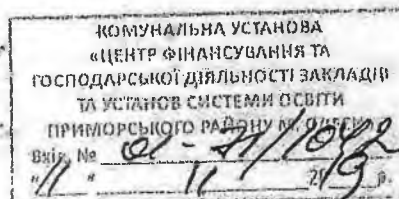 КОМУНАЛЬНА УСТАНОВА
«ЦЕНТР ФІНАНСУВАННЯ ТА
ГОСПОДАРСЬКОЇ ДІЯЛЬНОСТІ ЗАКЛАДІВ
ТА УСТАНОВ СИСТЕМИ ОСВІТИ
ПРИМОРСЬКОГО РАЙОНУ М. ОДЕСИ»
Вхід. № 01-71/1042
"11" 11 2019 р.